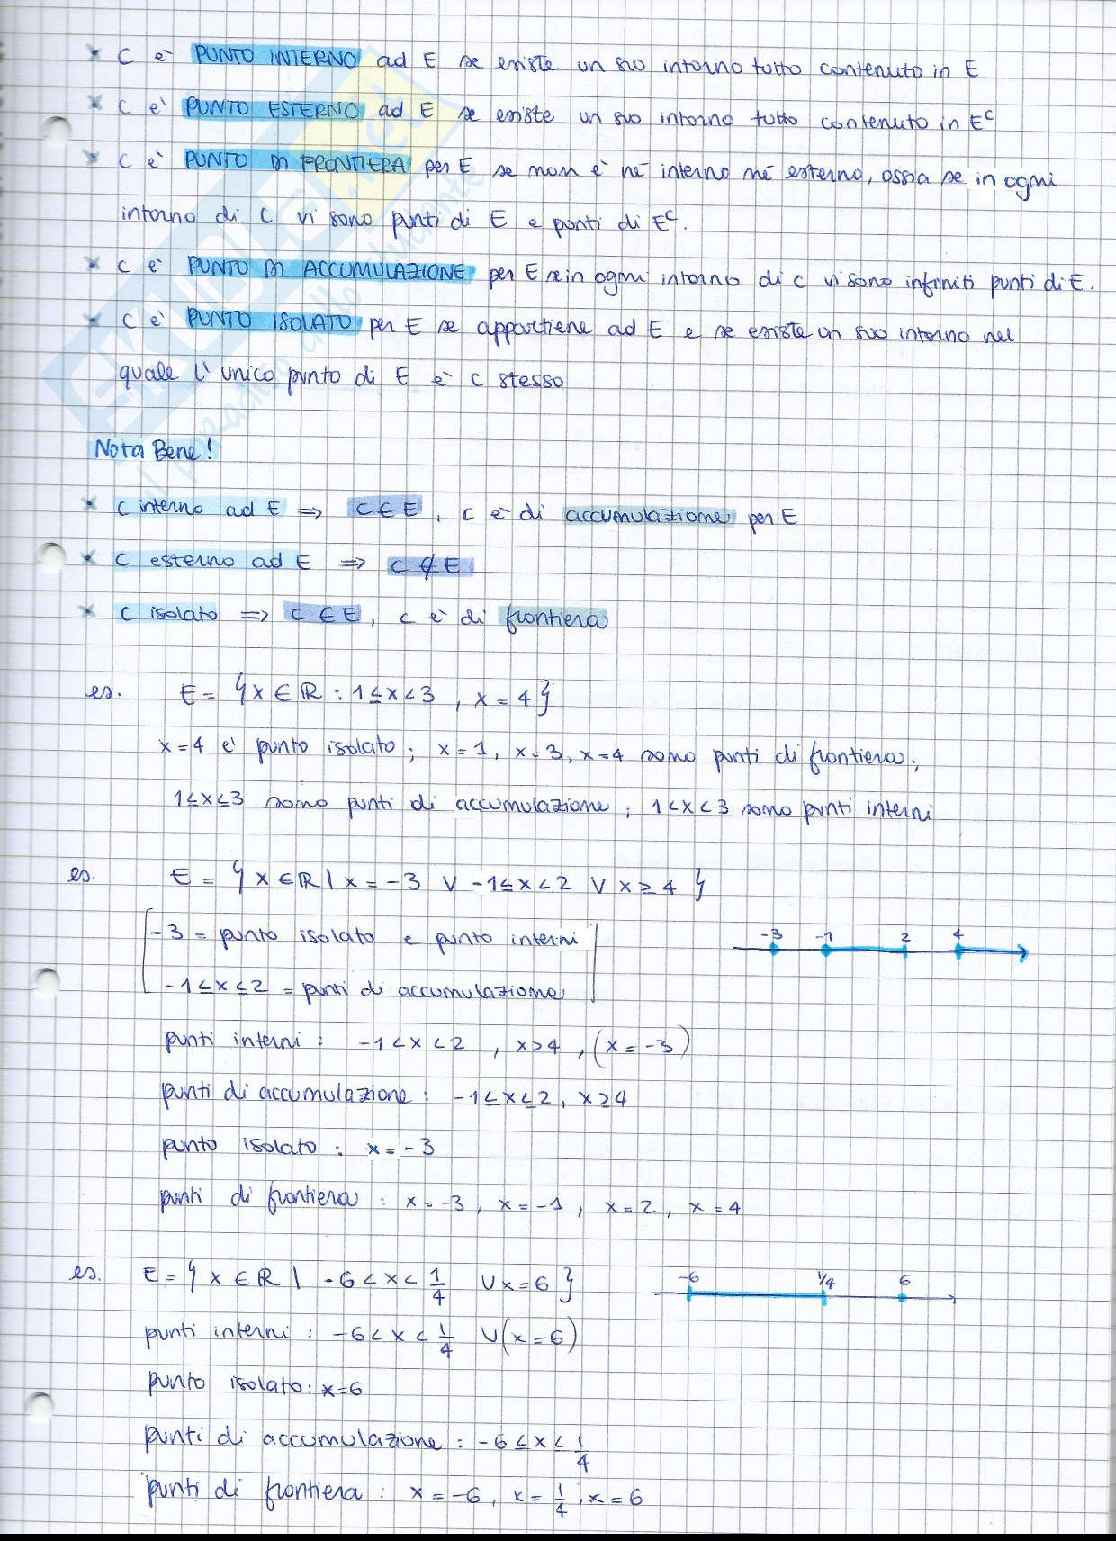 * C è PUNTO INTERNO ad E se esiste un suo intorno tutto contenuto in E
* C è PUNTO ESTERNO ad E se esiste un suo intorno tutto contenuto in Eᶜ
* C è PUNTO DI FRONTIERA per E se non è né interno né esterno, ossia se in ogni
intorno di C vi sono punti di E e punti di Eᶜ.
* C è PUNTO DI ACCUMULAZIONE per E se in ogni intorno di C vi sono infiniti punti di E.
* C è PUNTO ISOLATO per E se appartiene ad E e se esiste un suo intorno nel
quale l'unico punto di E è C stesso
Nota Bene!
* C interno ad E ⇒ C ∈ E, C è di accumulazione per E
* C esterno ad E ⇒ C ∉ E
* C isolato ⇒ C ∈ E, C è di frontiera
es. E = {x ∈ ℝ : 1 ≤ x < 3, x = 4}
x = 4 è punto isolato; x = 1, x = 3, x = 4 sono punti di frontiera;
1 ≤ x ≤ 3 sono punti di accumulazione; 1 < x < 3 sono punti interni
es. E = {x ∈ ℝ | x = -3 ∨ -1 ≤ x < 2 ∨ x ≥ 4}
-3 = punto isolato e punto interni
-3 -1 2 4
-1 ≤ x ≤ 2 = punti di accumulazione
punti interni: -1 < x < 2, x > 4, (x = -3)
punti di accumulazione: -1 ≤ x ≤ 2, x ≥ 4
punto isolato: x = -3
punti di frontiera: x = -3, x = -1, x = 2, x = 4
es. E = {x ∈ ℝ | -6 < x < 1/4 ∨ x = 6}
-6 1/4 6
punti interni: -6 < x < 1/4 ∨ (x = 6)
punto isolato: x = 6
punti di accumulazione: -6 ≤ x ≤ 1/4
punti di frontiera: x = -6, x = 1/4, x = 6